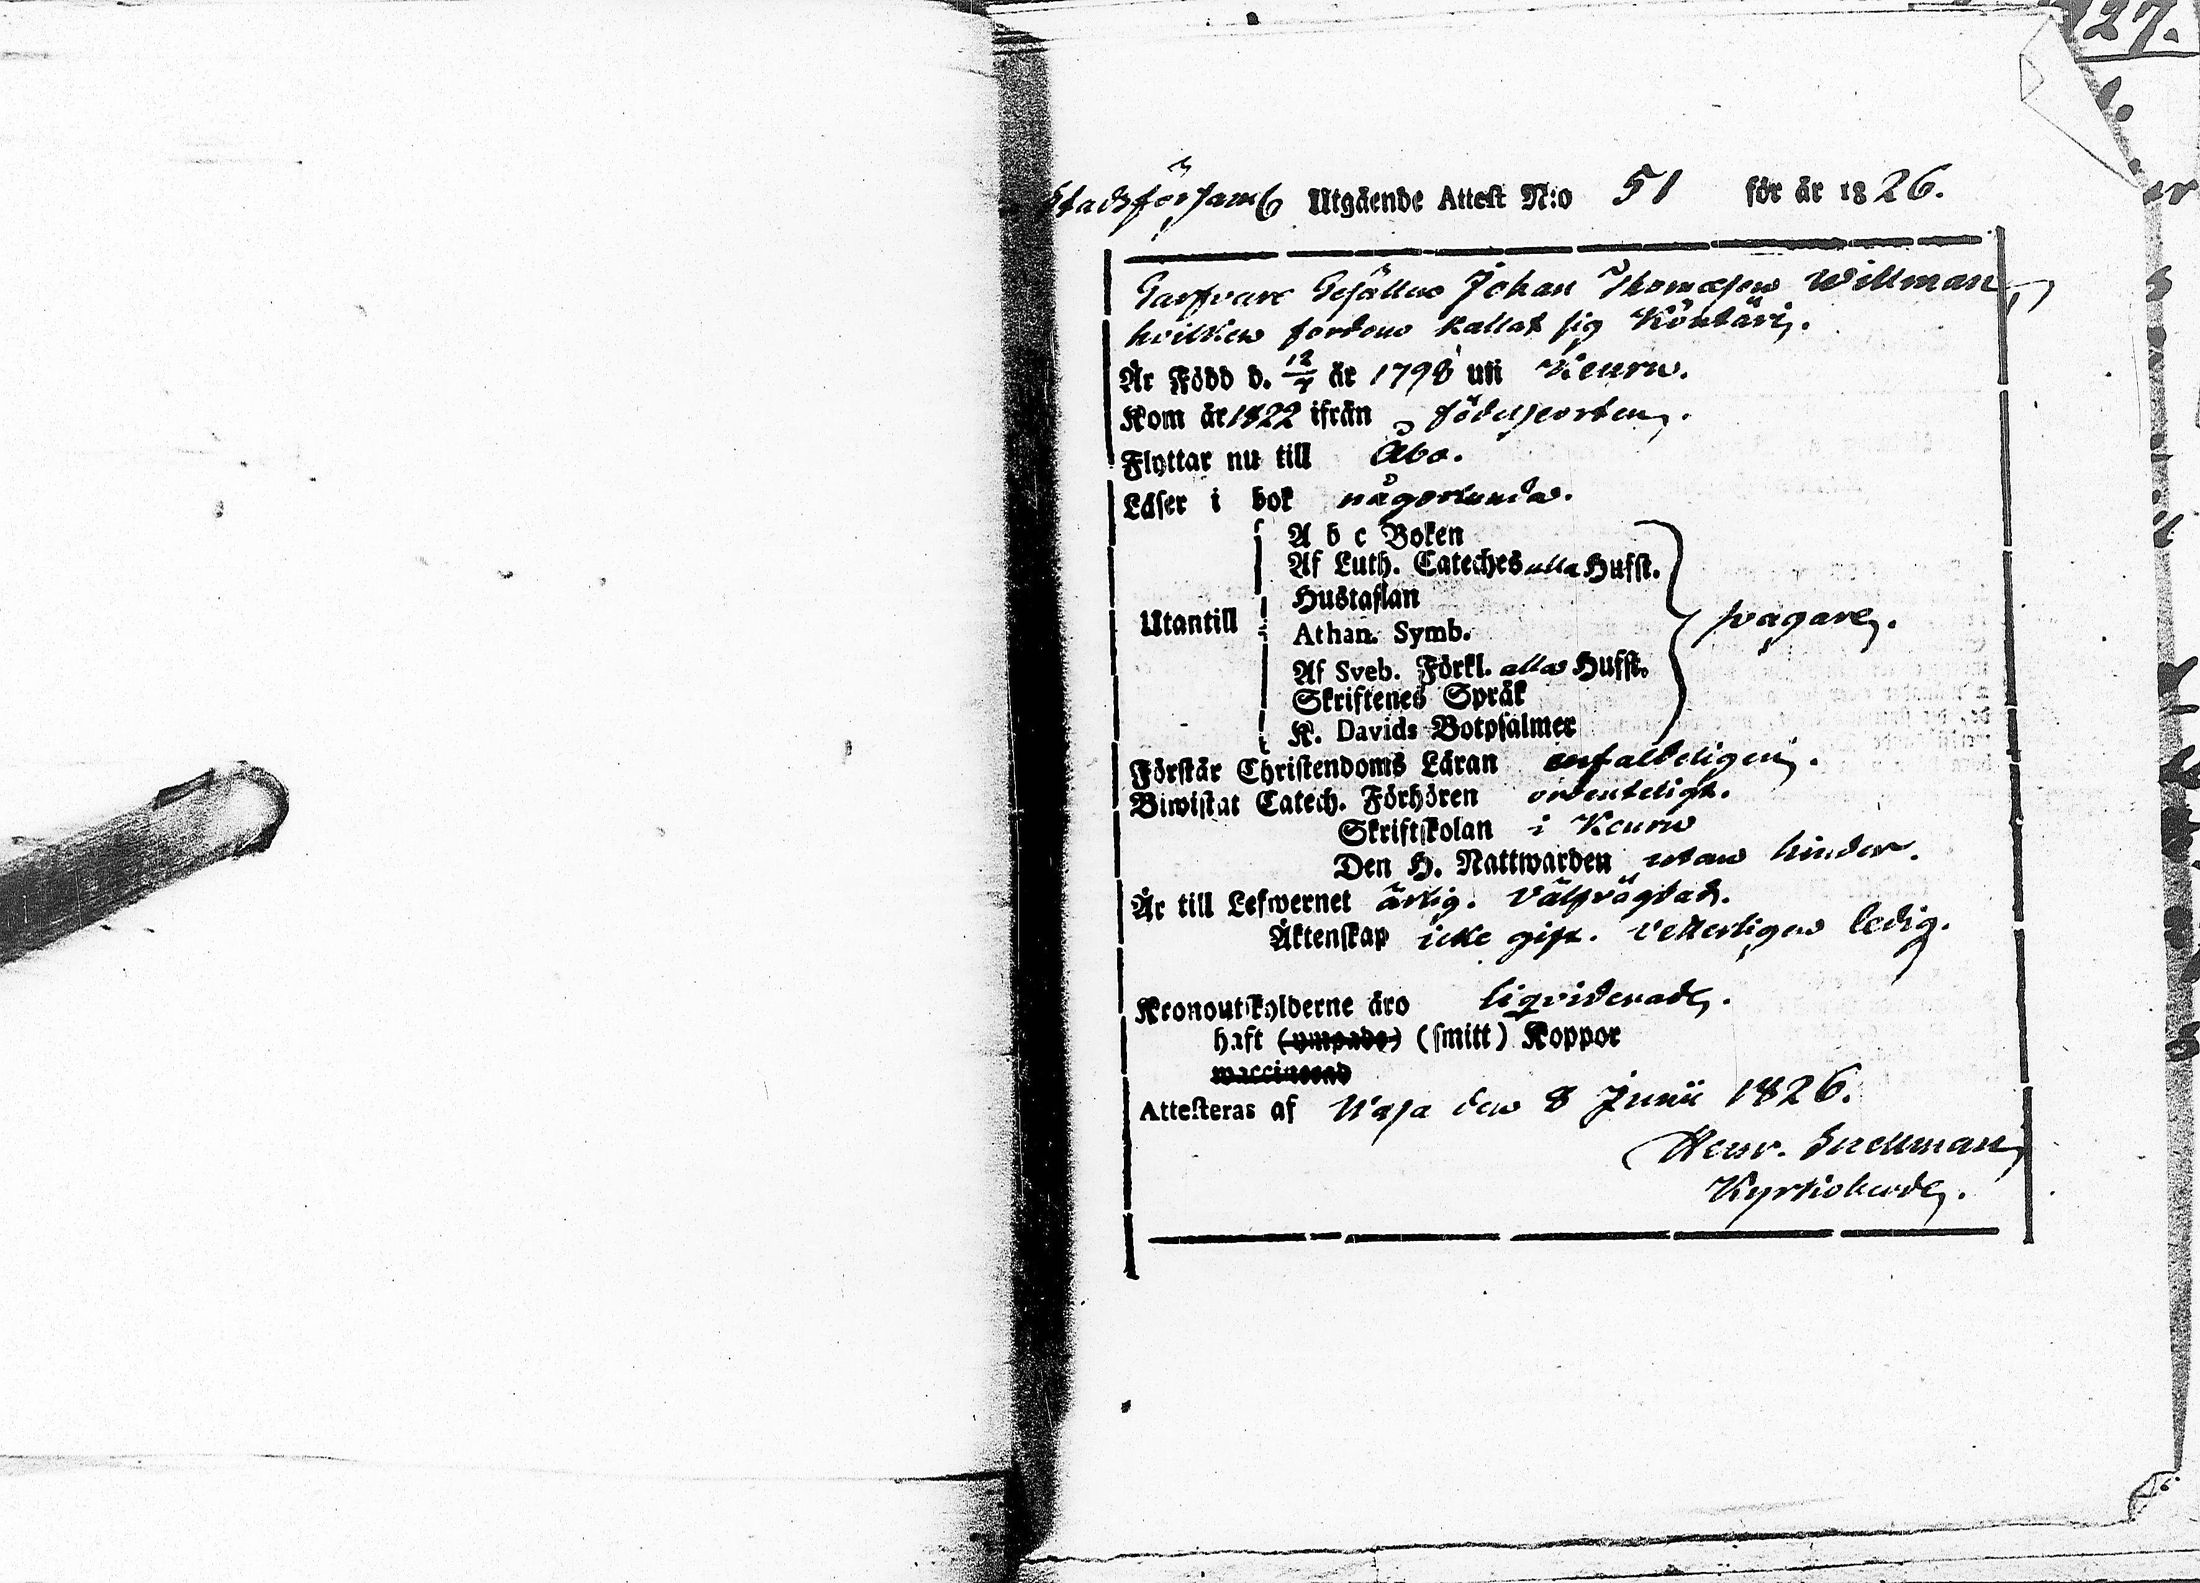 27.
Stadsförsaml Utgående Attest N:o 51 för år 1826.
Garfvare Gesällen Johan Thomasson Willman,
hvilken fordom kallat sig Köntäri.
Är Född d. 12/4 år 1798 uti Keuru.
Kom år 1822 ifrån födelseorten.
Flyttar nu till Åbo.
Läser i bok någorlunda.
A b c Boken
Af Luth. Cateches alla Hufst.
Hustaflan
Utantill Athan. Symb. svagare.
Af Sveb. Förkl. alla Hufst.
Skriftenes Språk
K. Davids Botpsalmer
Förstår Christendoms Läran enfaldeligen.
Biwistat Catech. Förhören ordenteligt.
Skriftskolan i Keuru
Den H. Nattwarden utan hinder.
Är till Lefwernet ärlig. Välfrägdad.
Äktenskap icke gift. Vetterligen ledig.
Kronoutskylderne äro liqviderade.
haft (ympade) (smitt) Koppor
waccinerad
Attesteras af Wasa den 8 Junii 1826.
Henr. Snellman
Kyrkoherde.